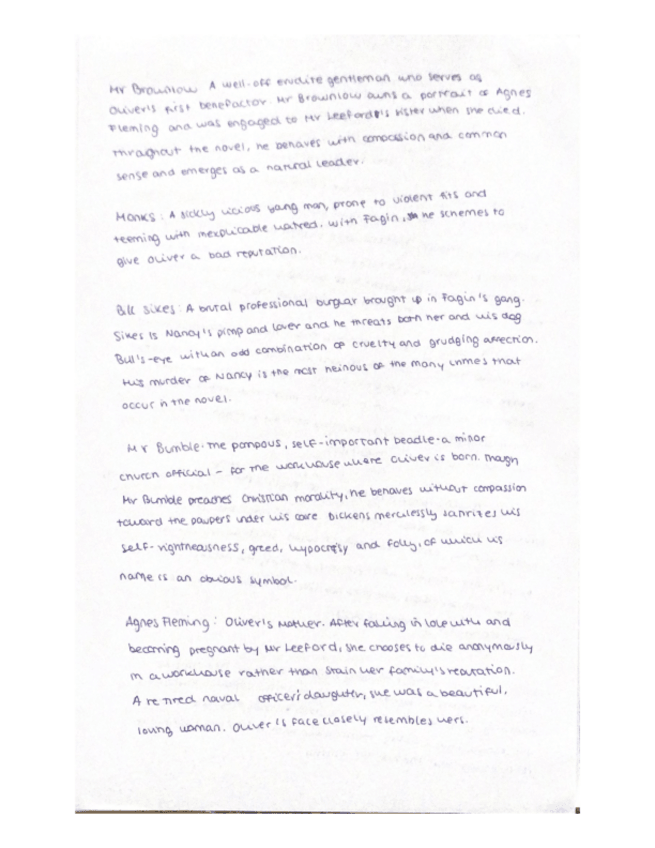 Mr Brownlow A well-off erudite gentleman who serves as
Oliver's first benefactor. Mr Brownlow owns a portrait of Agnes
Fleming and was engaged to Mr Leeford's sister when she died.
throughout the novel, he behaves with compassion and common
sense and emerges as a natural leader.
Monks : A sickly vicious yang man, prone to violent fits and
teeming with inexplicable hatred. with Fagin, he schemes to
give Oliver a bad reputation.
Bill Sikes : A brutal professional burglar brought up in Fagin's gang.
Sikes is Nancy's pimp and lover and he threats both her and his dog
Bull's-eye with an odd combination of cruelty and grudging affection.
His murder of Nancy is the most heinous of the many crimes that
occur in the novel.
Mr Bumble - The pompous, self-important beadle - a minor
church official - for the workhouse where Oliver is born. Though
Mr Bumble preaches Christian morality, he behaves without compassion
toward the paupers under his care Dickens mercilessly satirizes his
self-righteousness, greed, hypocrisy and folly, of which his
name is an obvious symbol.
Agnes Fleming : Oliver's Mother. After falling in love with and
becoming pregnant by Mr Leeford, she chooses to die anonymously
in a workhouse rather than stain her family's reputation.
A retired naval officer's daughter, she was a beautiful,
loving woman. Oliver's face closely resembles hers.